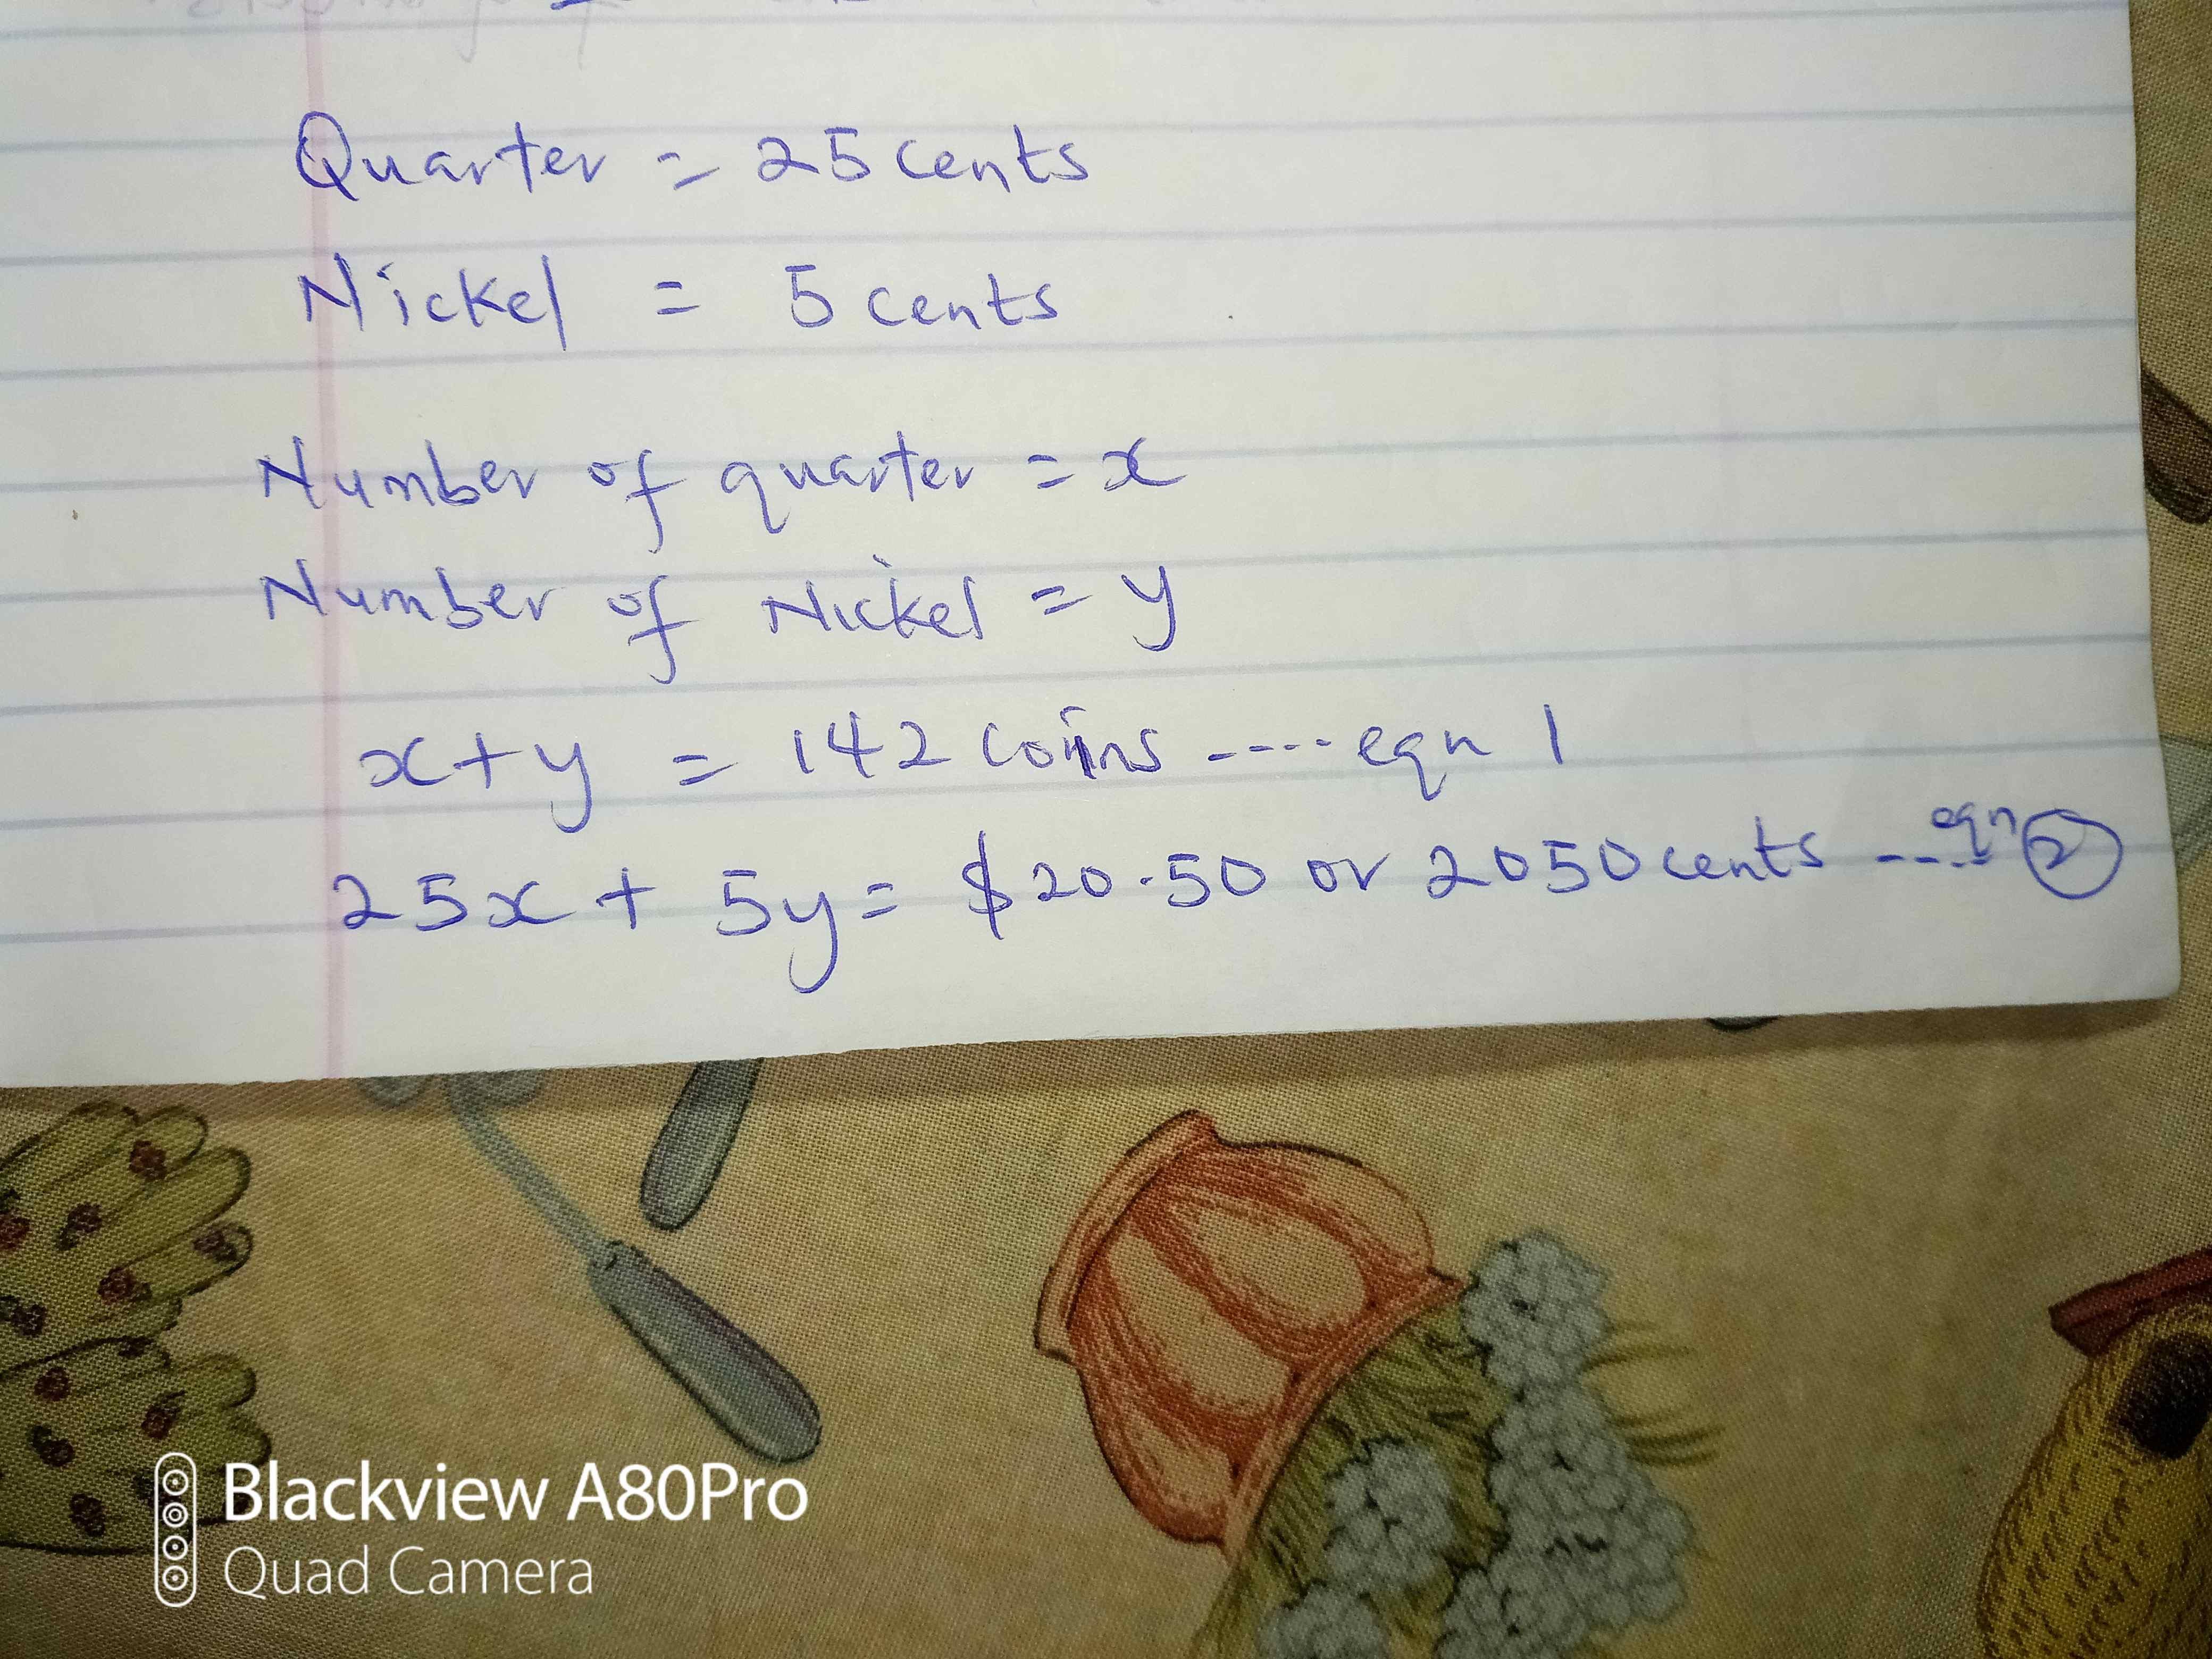 Quarter = 25 cents
Nickel = 5 cents
Number of quarter = x
Number of Nickel = y
x+y = 142 coins ---- eqn 1
25x + 5y = $20.50 or 2050 cents ---- eqn ②
Blackview A80Pro
Quad Camera